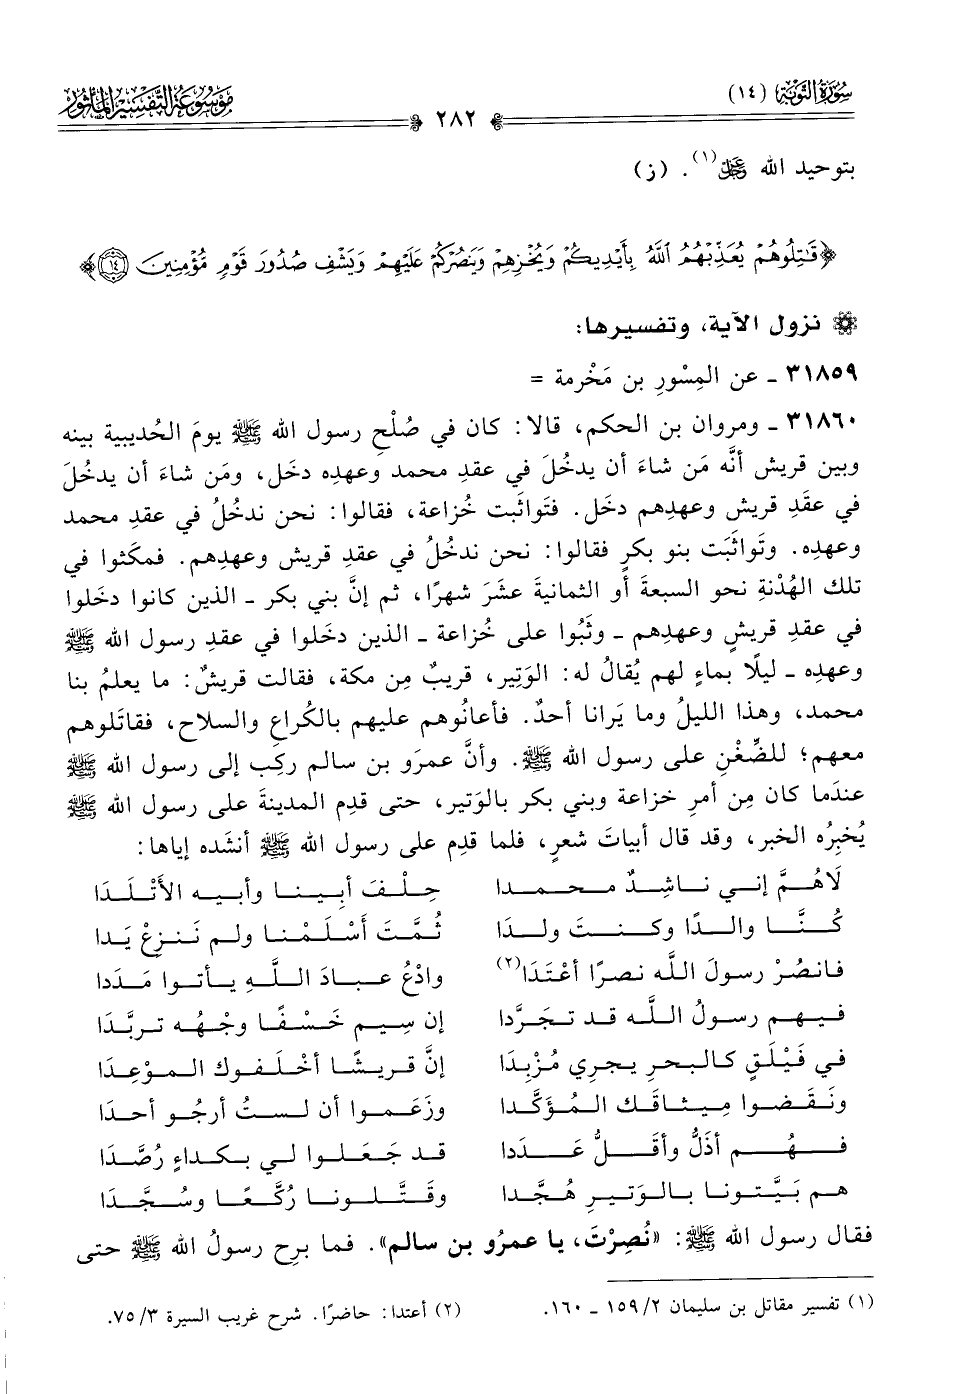 سورة التوبة (١٤)
موسوعة التفسير المأثور
٢٨٢
بتوحيد الله ﷿(١). (ز)
﴿قَٰتِلُوهُمۡ يُعَذِّبۡهُمُ ٱللَّهُ بِأَيۡدِيكُمۡ وَيُخۡزِهِمۡ وَيَنصُرۡكُمۡ عَلَيۡهِمۡ وَيَشۡفِ صُدُورَ قَوۡمٖ مُّؤۡمِنِينَ ١٤﴾
نزول الآية، وتفسيرها:
٣١٨٥٩ ـ عن المِسْورِ بن مَخْرمة =
٣١٨٦٠ ـ ومروان بن الحكم، قالا: كان في صُلْحِ رسول الله ﷺ يومَ الحُديبية بينه
وبين قريش أنَّه مَن شاءَ أن يدخُلَ في عقدِ محمد وعهده دخَل، ومَن شاءَ أن يدخُلَ
في عقَدِ قريش وعهدِهم دخل. فتَواثَبت خُزاعة، فقالوا: نحن ندخُلُ في عقدِ محمد
وعهده. وتَواثَبَت بنو بكرٍ فقالوا: نحن ندخُلُ في عقدِ قريش وعهدهم. فمكَثوا في
تلك الهُدْنةِ نحو السبعةَ أو الثمانيةَ عشَرَ شهرًا، ثم إنَّ بني بكر ـ الذين كانوا دخَلوا
في عقدِ قريشٍ وعهدِهم ـ وثَبُوا على خُزاعة ـ الذين دخَلوا في عقدِ رسول الله ﷺ
وعهدِه ـ ليلًا بماءٍ لهم يُقالُ له: الوَتِير، قريبٌ مِن مكة، فقالت قريشٌ: ما يعلمُ بنا
محمد، وهذا الليلُ وما يَرانا أحدٌ. فأعانُوهم عليهم بالكُراعِ والسلاح، فقاتَلوهم
معهم؛ للضِّغْنِ على رسول الله ﷺ. وأنَّ عمرَو بن سالم ركِب إلى رسول الله ﷺ
عندَما كان مِن أمرِ خزاعة وبني بكر بالوَتير، حتى قدِم المدينةَ على رسول الله ﷺ
يُخبِرُه الخبر، وقد قال أبياتَ شعرٍ، فلما قدِم على رسول الله ﷺ أنشَده إياها:
لَاهُمَّ إني ناشِدٌ محمدا حِلْفَ أبِينا وأبيه الأَتْلَدَا
كُنَّا والدًا وكنت ولدَا ثُمَّتَ أَسْلَمْنا ولم نَنزِعْ يَدا
فانصُرْ رسولَ اللَّه نصرًا أعْتَدَا(٢) وادْعُ عبادَ اللَّهِ يأتوا مَدَدا
فيهم رسولُ اللَّه قد تجَرَّدا إن سِيم خَسْفًا وجْهُه تربَّدَا
في فَيْلَقٍ كالبحرِ يجرِي مُزْبِدَا إنَّ قريشًا أخْلَفوك الموْعِدَا
ونَقَضوا مِيثاقَك المُؤَكَّدا وزَعَموا أن لستُ أرجُو أحدَا
فهُم أذَلُّ وأقَلُّ عَدَدا قد جَعَلوا لي بكداءٍ رُصَّدَا
هم بَيَّتونا بالوَتيرِ هُجَّدا وقَتَّلونا رُكَّعًا وسُجَّدَا
فقال رسول الله ﷺ: «نُصِرْتَ، يا عمرُو بن سالم». فما برِح رسولُ الله ﷺ حتى
(١) تفسير مقاتل بن سليمان ٢/ ١٥٩ ـ ١٦٠.
(٢) أعتدا: حاضرًا. شرح غريب السيرة ٣/ ٧٥.